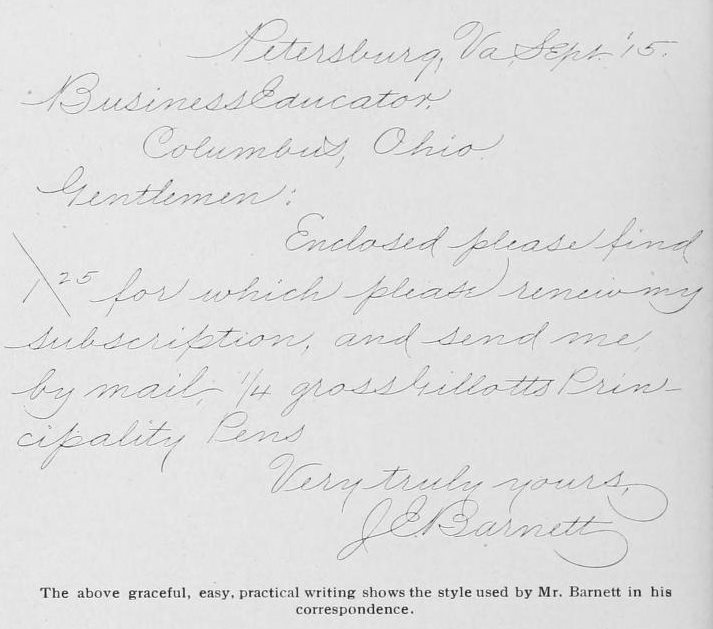 Petersburg, Va, Sept. '15.
Business Educator,
Columbus, Ohio.
Gentlemen:
Enclosed please find
1 25 for which please renew my
subscription, and send me,
by mail, 1/4 gross Gillotts Prin-
cipality Pens
Very truly yours,
J E Barnett
The above graceful, easy, practical writing shows the style used by Mr. Barnett in his
correspondence.